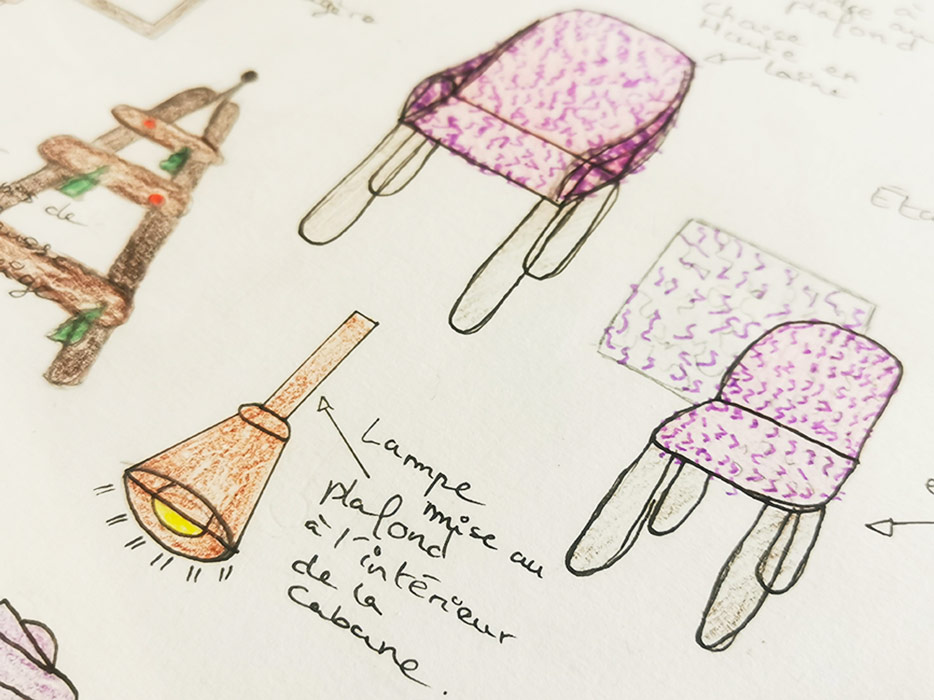 plafond
Chaise
Haute en
laine
de
Lampe
mise au
plafond
à l'intérieur
de la
Cabane.